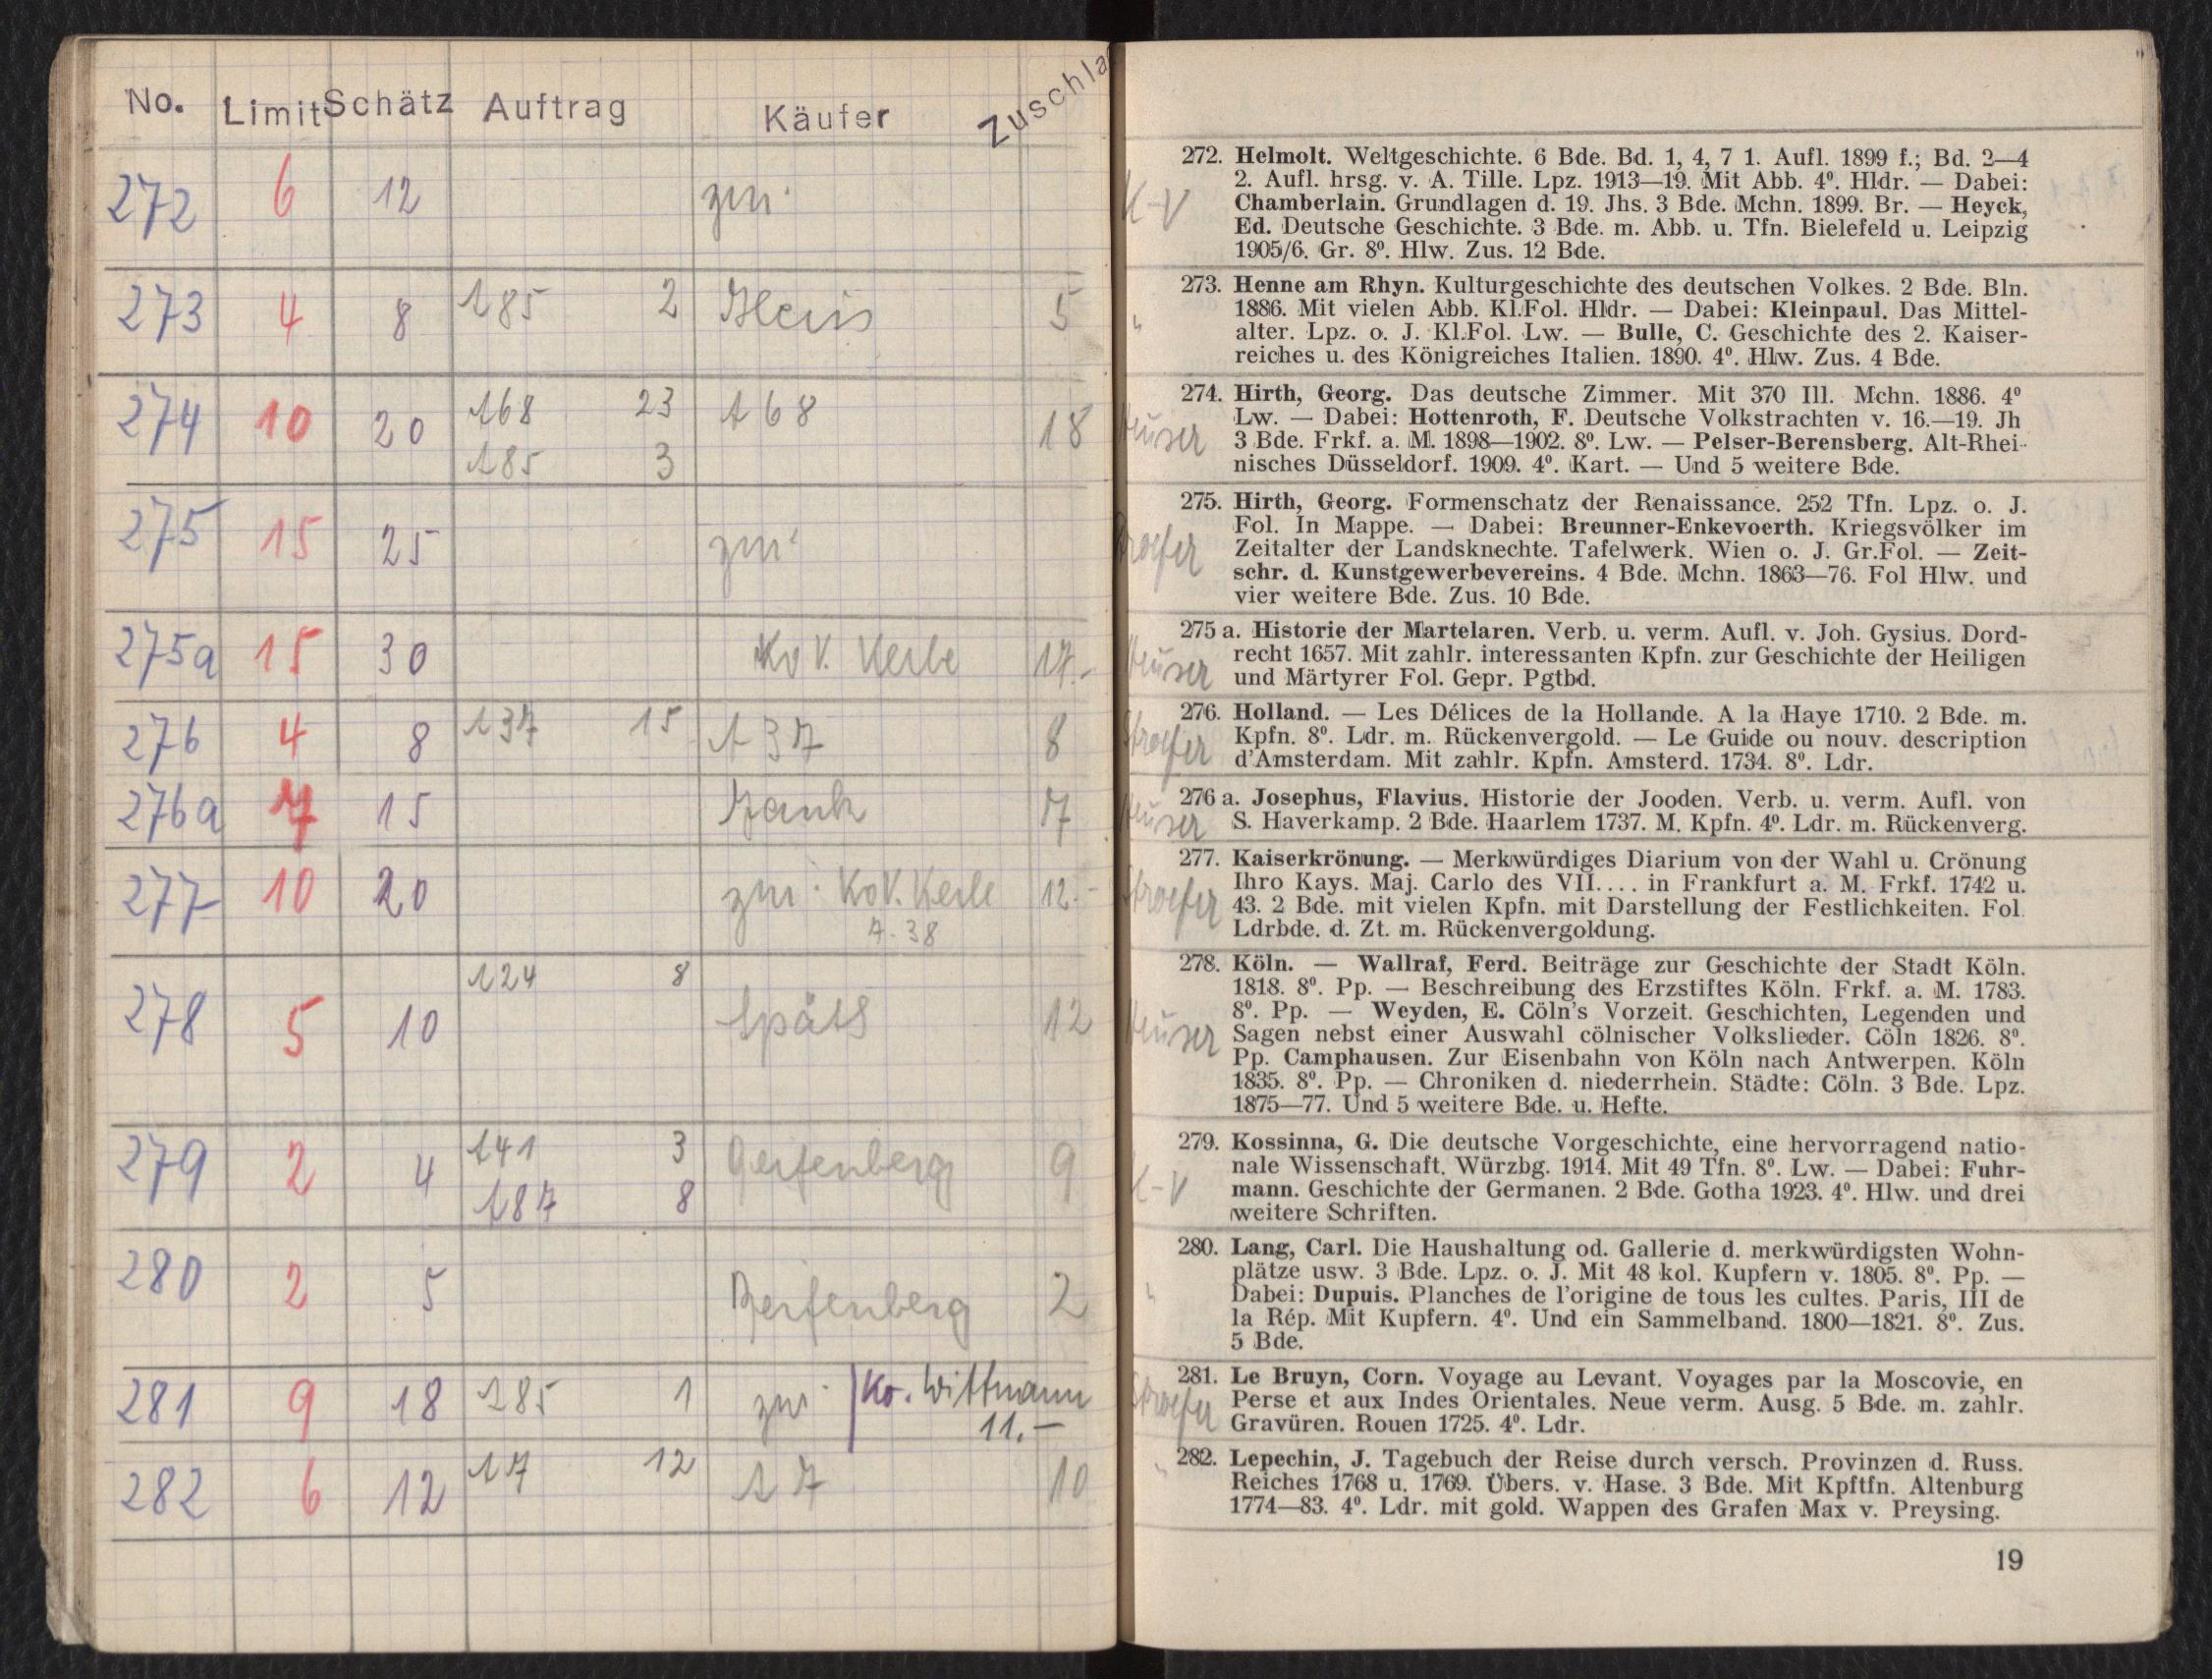 No. Limit Schätz Auftrag Käufer Zuschla
272 6 12 zur.
273 4 8 185 2 5
274 10 20 168 23 168 18
185 3
275 15 25 zur.
275a 15 30 KoV. Kerle 17.-
276 4 8 137 15 137 8
276a 7 15 Zank 7
277 10 20 zur. KoV. Kerle 12.-
7.38
278 5 10 124 8 Späth 12
279 2 4 141 3 Reifenberg 9
187 8
280 2 5 Reifenberg 2
281 9 18 185 1 zur. Ko. Wittmann
11.—
282 6 12 17 12 17 10
272. Helmolt. Weltgeschichte. 6 Bde. Bd. 1, 4, 7 1. Aufl. 1899 f.; Bd. 2—4
2. Aufl. hrsg. v. A. Tille. Lpz. 1913—19. Mit Abb. 4⁰. Hldr. — Dabei:
K-V Chamberlain. Grundlagen d. 19. Jhs. 3 Bde. Mchn. 1899. Br. — Heyck,
Ed. Deutsche Geschichte. 3 Bde. m. Abb. u. Tfn. Bielefeld u. Leipzig
1905/6. Gr. 8⁰. Hlw. Zus. 12 Bde.
273. Henne am Rhyn. Kulturgeschichte des deutschen Volkes. 2 Bde. Bln.
" 1886. Mit vielen Abb. Kl.Fol. Hldr. — Dabei: Kleinpaul. Das Mittel-
alter. Lpz. o. J. Kl.Fol. Lw. — Bulle, C. Geschichte des 2. Kaiser-
reiches u. des Königreiches Italien. 1890. 4⁰. Hlw. Zus. 4 Bde.
274. Hirth, Georg. Das deutsche Zimmer. Mit 370 Ill. Mchn. 1886. 4⁰
Lw. — Dabei: Hottenroth, F. Deutsche Volkstrachten v. 16.—19. Jh
3 Bde. Frkf. a. M. 1898—1902. 8⁰. Lw. — Pelser-Berensberg. Alt-Rhei-
nisches Düsseldorf. 1909. 4⁰. Kart. — Und 5 weitere Bde.
275. Hirth, Georg. Formenschatz der Renaissance. 252 Tfn. Lpz. o. J.
Fol. In Mappe. — Dabei: Breunner-Enkevoerth. Kriegsvölker im
Zeitalter der Landsknechte. Tafelwerk. Wien o. J. Gr.Fol. — Zeit-
schr. d. Kunstgewerbevereins. 4 Bde. Mchn. 1863—76. Fol Hlw. und
vier weitere Bde. Zus. 10 Bde.
275 a. Historie der Martelaren. Verb. u. verm. Aufl. v. Joh. Gysius. Dord-
recht 1657. Mit zahlr. interessanten Kpfn. zur Geschichte der Heiligen
und Märtyrer Fol. Gepr. Pgtbd.
276. Holland. — Les Délices de la Hollande. A la Haye 1710. 2 Bde. m.
Stroefer Kpfn. 8⁰. Ldr. m. Rückenvergold. — Le Guide ou nouv. description
d'Amsterdam. Mit zahlr. Kpfn. Amsterd. 1734. 8⁰. Ldr.
276 a. Josephus, Flavius. Historie der Jooden. Verb. u. verm. Aufl. von
S. Haverkamp. 2 Bde. Haarlem 1737. M. Kpfn. 4⁰. Ldr. m. Rückenverg.
277. Kaiserkrönung. — Merkwürdiges Diarium von der Wahl u. Crönung
Ihro Kays. Maj. Carlo des VII.... in Frankfurt a. M. Frkf. 1742 u.
Stroefer 43. 2 Bde. mit vielen Kpfn. mit Darstellung der Festlichkeiten. Fol
Ldrbde. d. Zt. m. Rückenvergoldung.
278. Köln. — Wallraf, Ferd. Beiträge zur Geschichte der Stadt Köln.
1818. 8⁰. Pp. — Beschreibung des Erzstiftes Köln. Frkf. a. M. 1783.
8⁰. Pp. — Weyden, E. Cöln's Vorzeit. Geschichten, Legenden und
Sagen nebst einer Auswahl cölnischer Volkslieder. Cöln 1826. 8⁰.
Pp. Camphausen. Zur Eisenbahn von Köln nach Antwerpen. Köln
1835. 8⁰. Pp. — Chroniken d. niederrhein. Städte: Cöln. 3 Bde. Lpz.
1875—77. Und 5 weitere Bde. u. Hefte.
279. Kossinna, G. Die deutsche Vorgeschichte, eine hervorragend natio-
nale Wissenschaft. Würzbg. 1914. Mit 49 Tfn. 8⁰. Lw. — Dabei: Fuhr-
K-V mann. Geschichte der Germanen. 2 Bde. Gotha 1923. 4⁰. Hlw. und drei
weitere Schriften.
280. Lang, Carl. Die Haushaltung od. Gallerie d. merkwürdigsten Wohn-
plätze usw. 3 Bde. Lpz. o. J. Mit 48 kol. Kupfern v. 1805. 8⁰. Pp. —
" Dabei: Dupuis. Planches de l'origine de tous les cultes. Paris, III de
la Rép. Mit Kupfern. 4⁰. Und ein Sammelband. 1800—1821. 8⁰. Zus.
5 Bde.
281. Le Bruyn, Corn. Voyage au Levant. Voyages par la Moscovie, en
Stroefer Perse et aux Indes Orientales. Neue verm. Ausg. 5 Bde. m. zahlr.
Gravüren. Rouen 1725. 4⁰. Ldr.
" 282. Lepechin, J. Tagebuch der Reise durch versch. Provinzen d. Russ.
Reiches 1768 u. 1769. Übers. v. Hase. 3 Bde. Mit Kpftfn. Altenburg
1774—83. 4⁰. Ldr. mit gold. Wappen des Grafen Max v. Preysing.
19